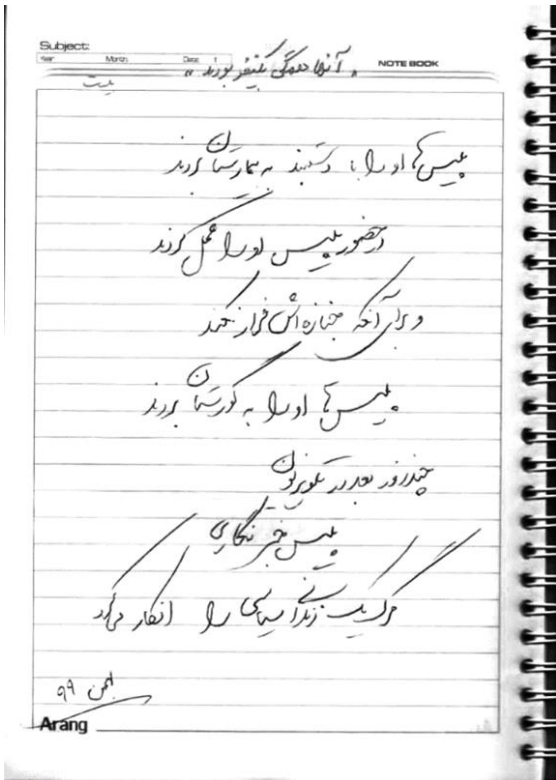 Subject:
Year: Month: Date: /
NOTE BOOK
"آنها همگی یکنفر بودند"
بیست
پلیس‌ها او را با دستبند به بیمارستان بردند
در حضور پلیس او را عمل کردند
و برای آنکه جنازه‌اش فرار نکند
پلیس‌ها او را به گورستان بردند
چند روز بعد در تلویزیون
پلیس خبرنگاری
مرگ یک زندانی سیاسی را انکار می‌کرد
بهمن ۹۹
Arang